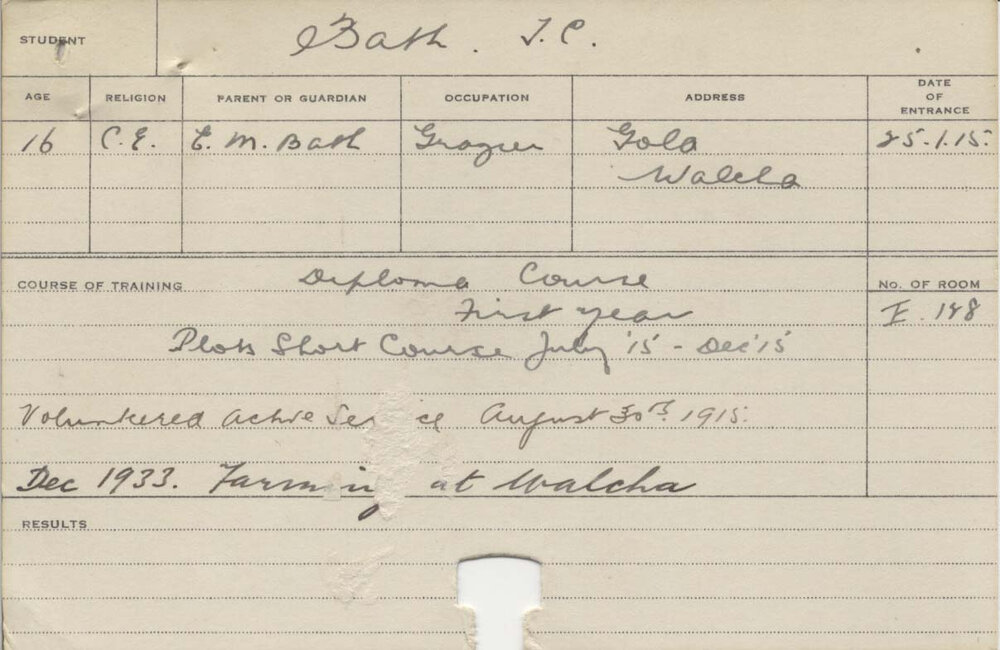 STUDENT Bath. J.C.
AGE RELIGION PARENT OR GUARDIAN OCCUPATION ADDRESS DATE OF ENTRANCE
16 C.E. E. M. Bath Grazier Gola 25.1.15.
Walcha
COURSE OF TRAINING Diploma Course No. OF ROOM
First year E. 188
Plots Short Course July '15 - Dec '15
Volunteered Active Service August 30th 1915.
Dec 1933. Farming at Walcha
RESULTS